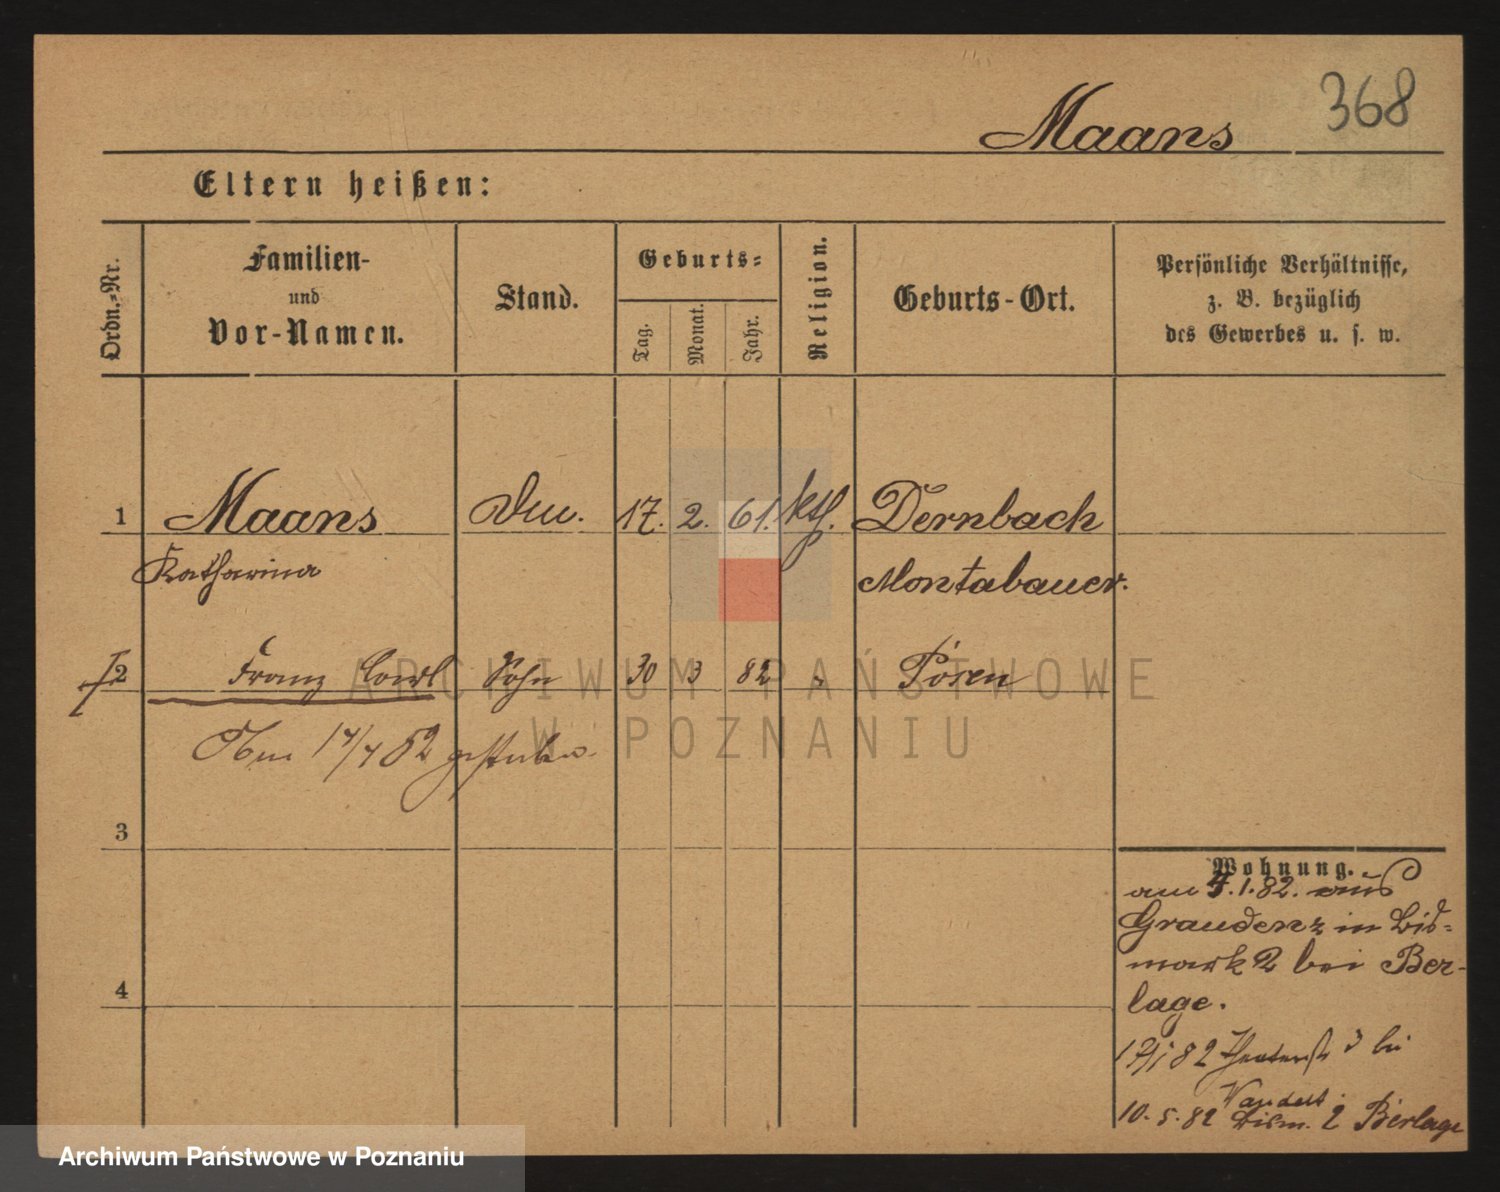 368
Maans
Eltern heißen:
Ordn.-Nr.
Familien-
und
Vor-Namen.
Stand.
Geburts-
Tag.
Monat.
Jahr.
Religion.
Geburts-Ort.
Persönliche Verhältnisse,
z. B. bezüglich
des Gewerbes u. s. w.
1 Maans 17. 2. 61. kth. Dernbach
Katharina Montabauer.
2 Franz Carl Sohn 30 3 82 " Posen
17/4 82 gestorben
3
4
Wohnung.
am 5.1.82. aus
Graudenz in Bis-
mark 2 bei Ber-
lage.
82 Theaterstr 3 bei
Wandelt
10. 5. 82 Bism. 2 Berlage
ARCHIWUM PAŃSTWOWE
W POZNANIU
Archiwum Państwowe w Poznaniu